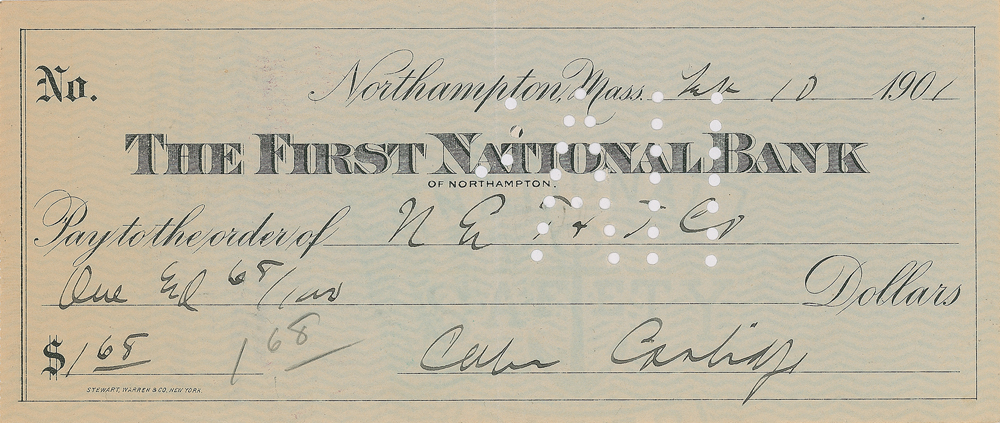 No.
Northampton, Mass. Feb 10 1901
THE FIRST NATIONAL BANK
OF NORTHAMPTON.
Pay to the order of N E T & T Co
One 68/100 Dollars
$1 68 1 68 Calvin Coolidge
STEWART, WARREN & CO. NEW YORK.